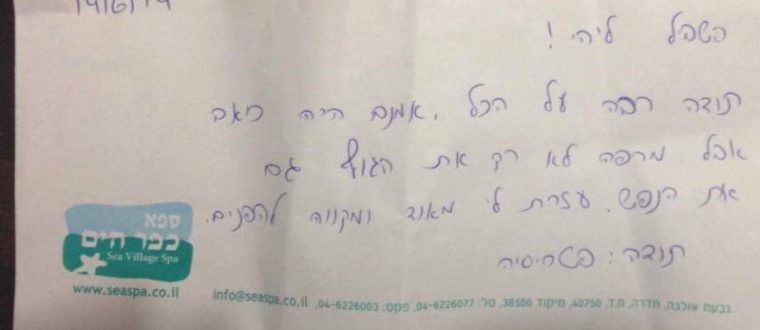 14/6/14
בשביל ליהי!
תודה רבה על הכל, אמנם היה כואב
אבל מרפה לא רק את הגוף גם
את הנפש. עזרת לי מאוד ומקווה להפנים.
תודה: פטריסיה
ספא
כפר הים
Sea Village Spa
www.seaspa.co.il
גבעת אולגה, חדרה, ת.ד. 40750, מיקוד 38100, טל: 04-6226077, פקס: 04-6226003, info@seaspa.co.il